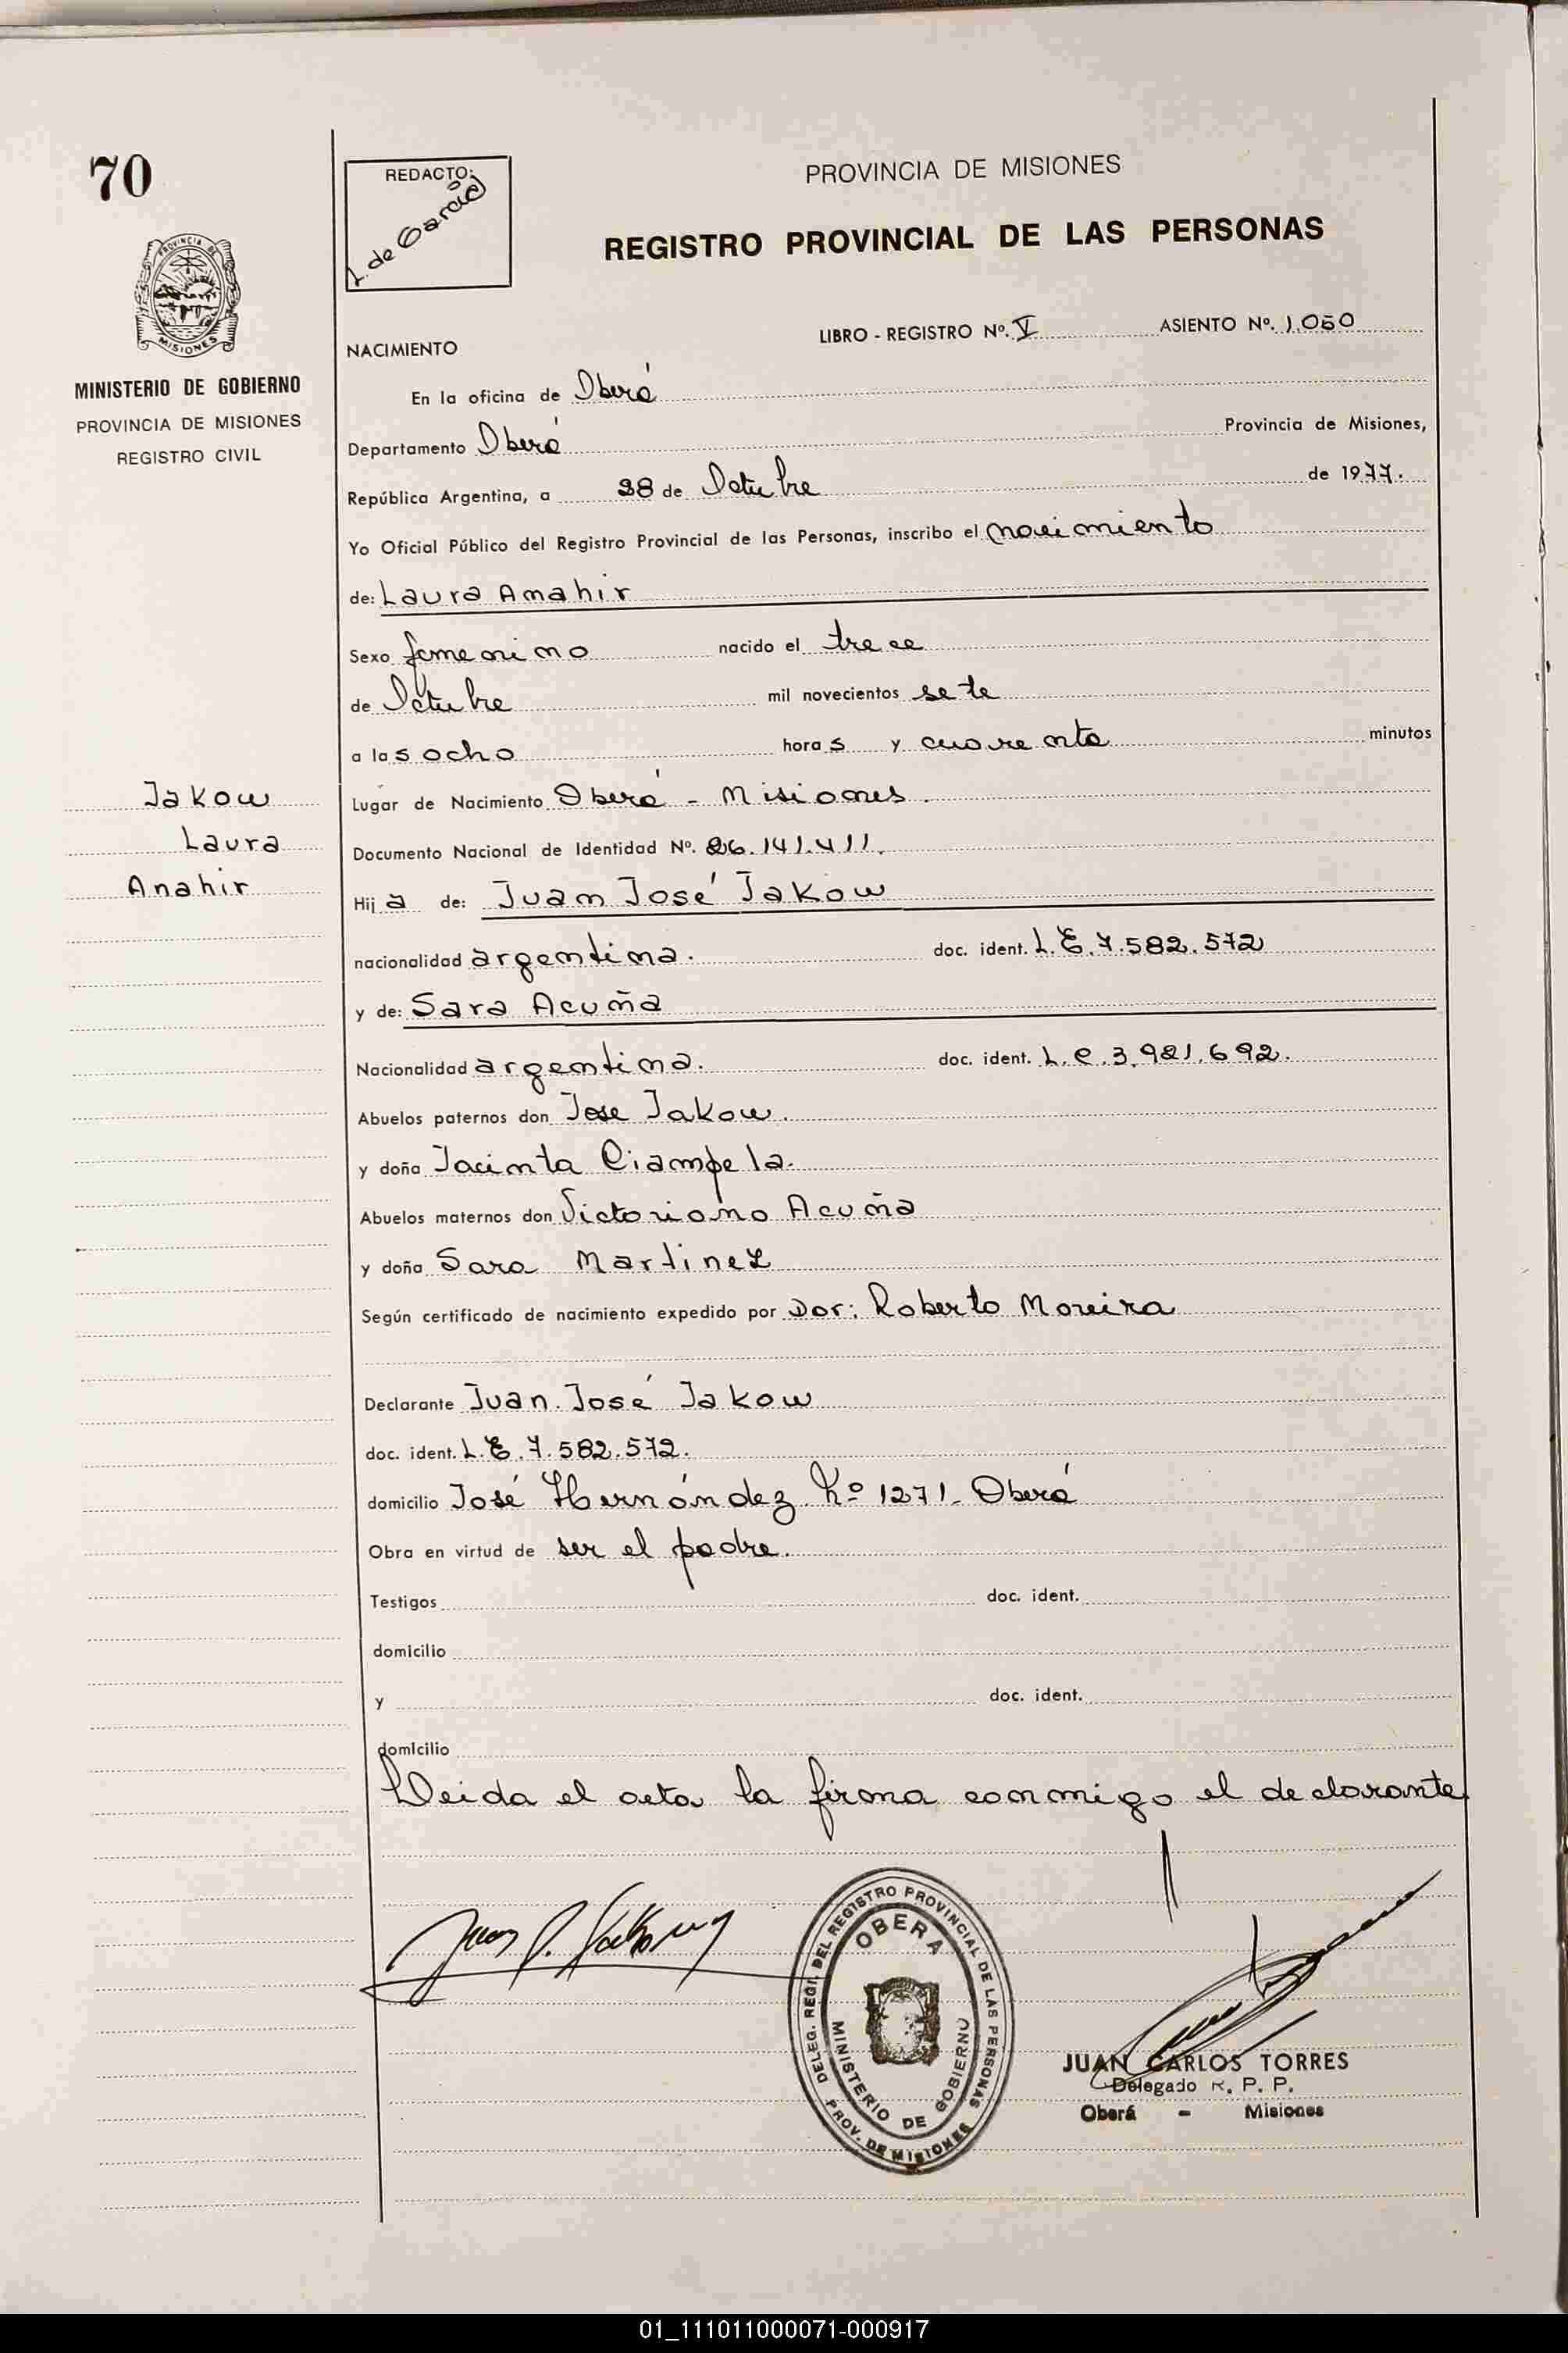 70
REDACTO:
L. de Garcia
PROVINCIA DE MISIONES
REGISTRO PROVINCIAL DE LAS PERSONAS
PROVINCIA DE
MISIONES
MINISTERIO DE GOBIERNO
PROVINCIA DE MISIONES
REGISTRO CIVIL
NACIMIENTO LIBRO - REGISTRO Nº. V ASIENTO Nº. 1.050
En la oficina de Oberá
Departamento Oberá Provincia de Misiones,
República Argentina, a 28 de Octubre de 1977.
Yo Oficial Público del Registro Provincial de las Personas, inscribo el nacimiento
de: Laura Anahir
Sexo femenino nacido el trece
de Octubre mil novecientos sete
a las ocho horas y cuarenta minutos
Jakow
Laura
Anahir
Lugar de Nacimiento Oberá - Misiones.
Documento Nacional de Identidad Nº. 26.141.411.
Hija de: Juan José Jakow
nacionalidad argentina. doc. ident. L.E. 7.582.572
y de: Sara Acuña
Nacionalidad argentina. doc. ident. L.C. 3.921.692.
Abuelos paternos don Jose Jakow.
y doña Jacinta Ciampela.
Abuelos maternos don Victoriano Acuña
y doña Sara Martinez
Según certificado de nacimiento expedido por Dor: Roberto Moreira
Declarante Juan José Jakow
doc. ident. L.E. 7.582.572.
domicilio José Hernández Nº 1271- Oberá
Obra en virtud de ser el padre.
Testigos doc. ident.
domicilio
y doc. ident.
domicilio
Leida el acta la firma conmigo el declarante
DELEG. REGI. DEL REGISTRO PROVINCIAL DE LAS PERSONAS
OBERA
MINISTERIO DE GOBIERNO
PROV. DE MISIONES
JUAN CARLOS TORRES
Delegado R. P. P.
Oberá - Misiones
01_111011000071-000917